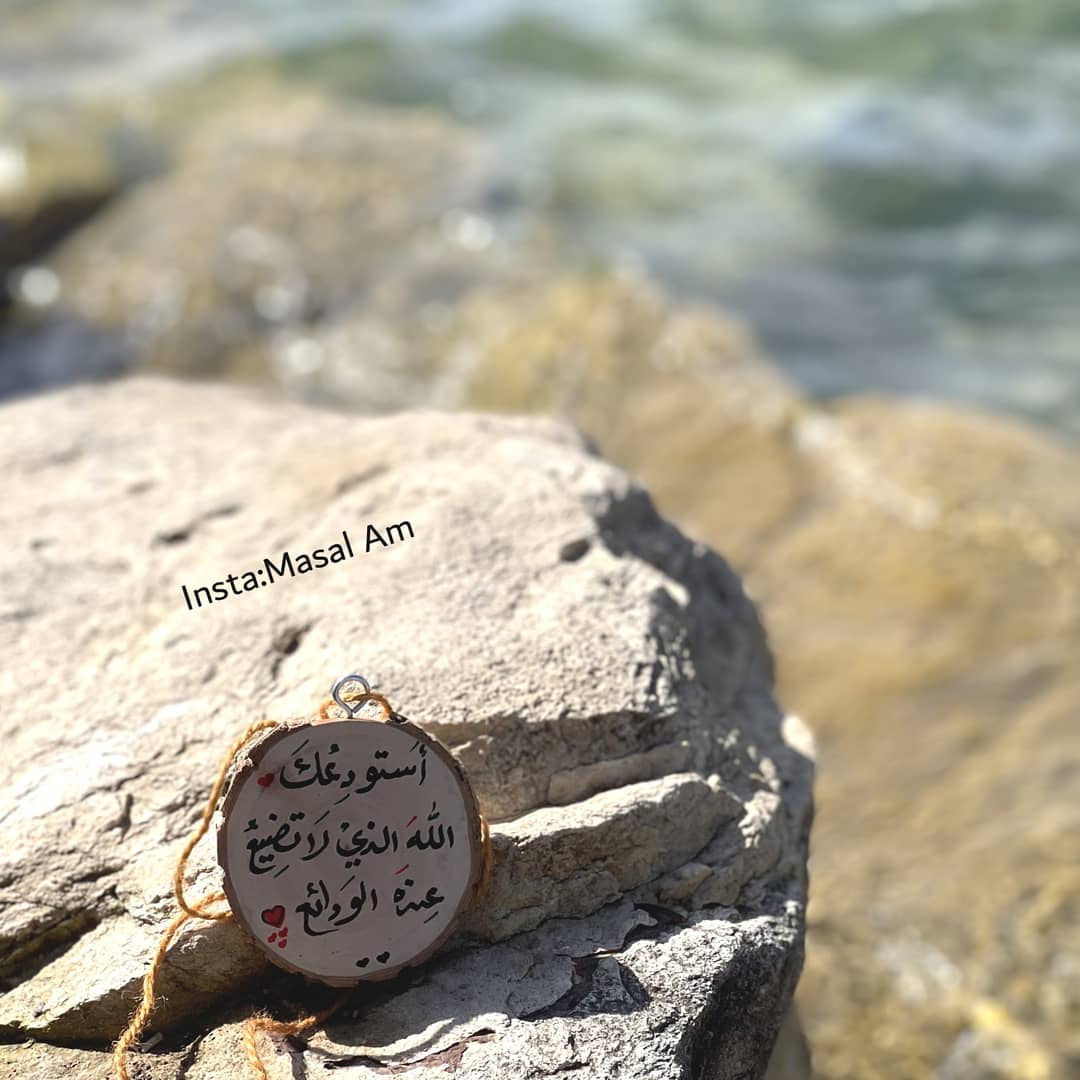 Insta:Masal Am
أَستودِعْكَ
اللّٰهَ الذيْ لَا تَضِيْعُ
عِندَه الوَدائع